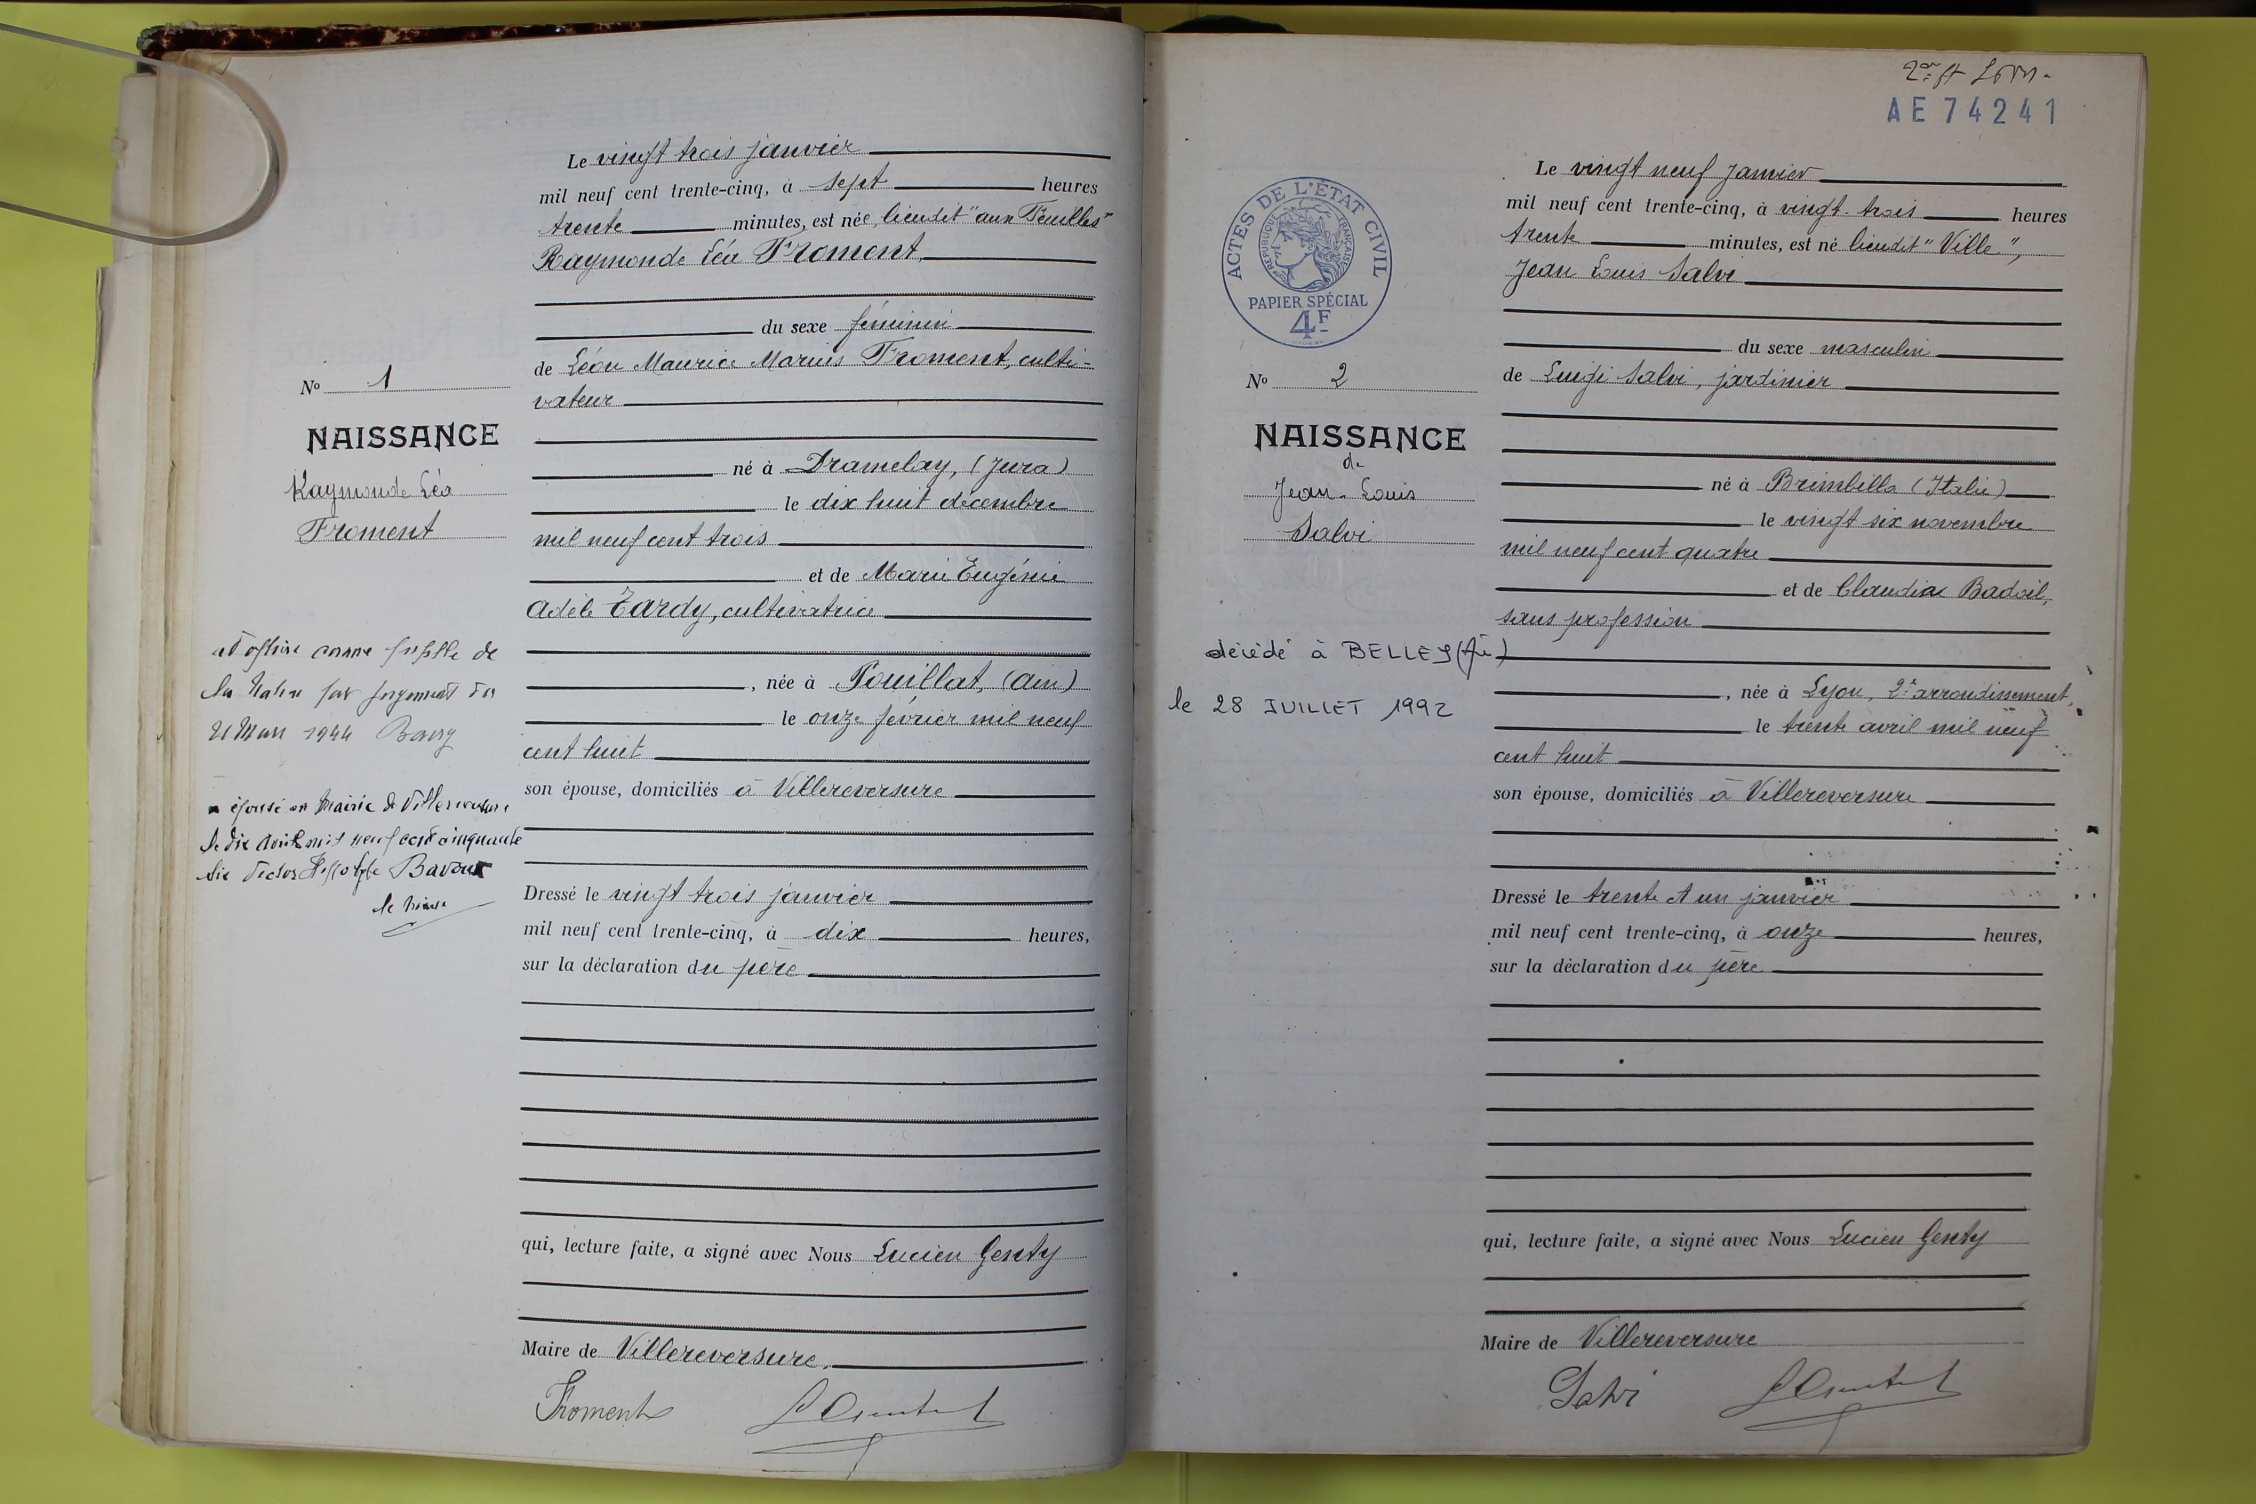 Le vingt trois janvier
mil neuf cent trente-cinq, à sept heures
trente minutes, est née, lieudit "aux Feuilles"
Raymonde Léa Froment
du sexe féminin
de Léon Maurice Marius Froment, culti-
vateur
né à Dramelay, (Jura)
le dix huit décembre
mil neuf cent trois
et de Marie Eugénie
Adèle Tardy, cultivatrice
, née à Pouillat, (Ain)
le onze février mil neuf
cent huit
son épouse, domiciliés à Villereversure
Dressé le vingt trois janvier
mil neuf cent trente-cinq, à dix heures,
sur la déclaration du père
qui, lecture faite, a signé avec Nous Lucien Genty
Maire de Villereversure.
Froment
No 1
NAISSANCE
Raymonde Léa
Froment
adoptive comme pupille de
la Nation par jugement du
21 Mars 1944 Bourg
épousé en Mairie de Villereversure
le dix août mil neuf cent cinquante
six Bavoux
le Maire
AE 74241
ACTES DE L'ÉTAT CIVIL
RÉPUBLIQUE FRANÇAISE
PAPIER SPÉCIAL
4F
No 2
NAISSANCE
de
Jean-Louis
Salvi
décédé à BELLEY (Ain)
le 28 JUILLET 1992
Le vingt neuf janvier
mil neuf cent trente-cinq, à vingt-trois heures
trente minutes, est né lieudit "Ville",
Jean Louis Salvi
du sexe masculin
de Luigi Salvi, jardinier
né à Brimbilla (Italie)
le vingt six novembre
mil neuf cent quatre
et de Claudia Badoil,
sans profession
, née à Lyon, 2e arrondissement,
le trente avril mil neuf
cent huit
son épouse, domiciliés à Villereversure
Dressé le trente et un janvier
mil neuf cent trente-cinq, à onze heures,
sur la déclaration du père
qui, lecture faite, a signé avec Nous Lucien Genty
Maire de Villereversure
Salvi